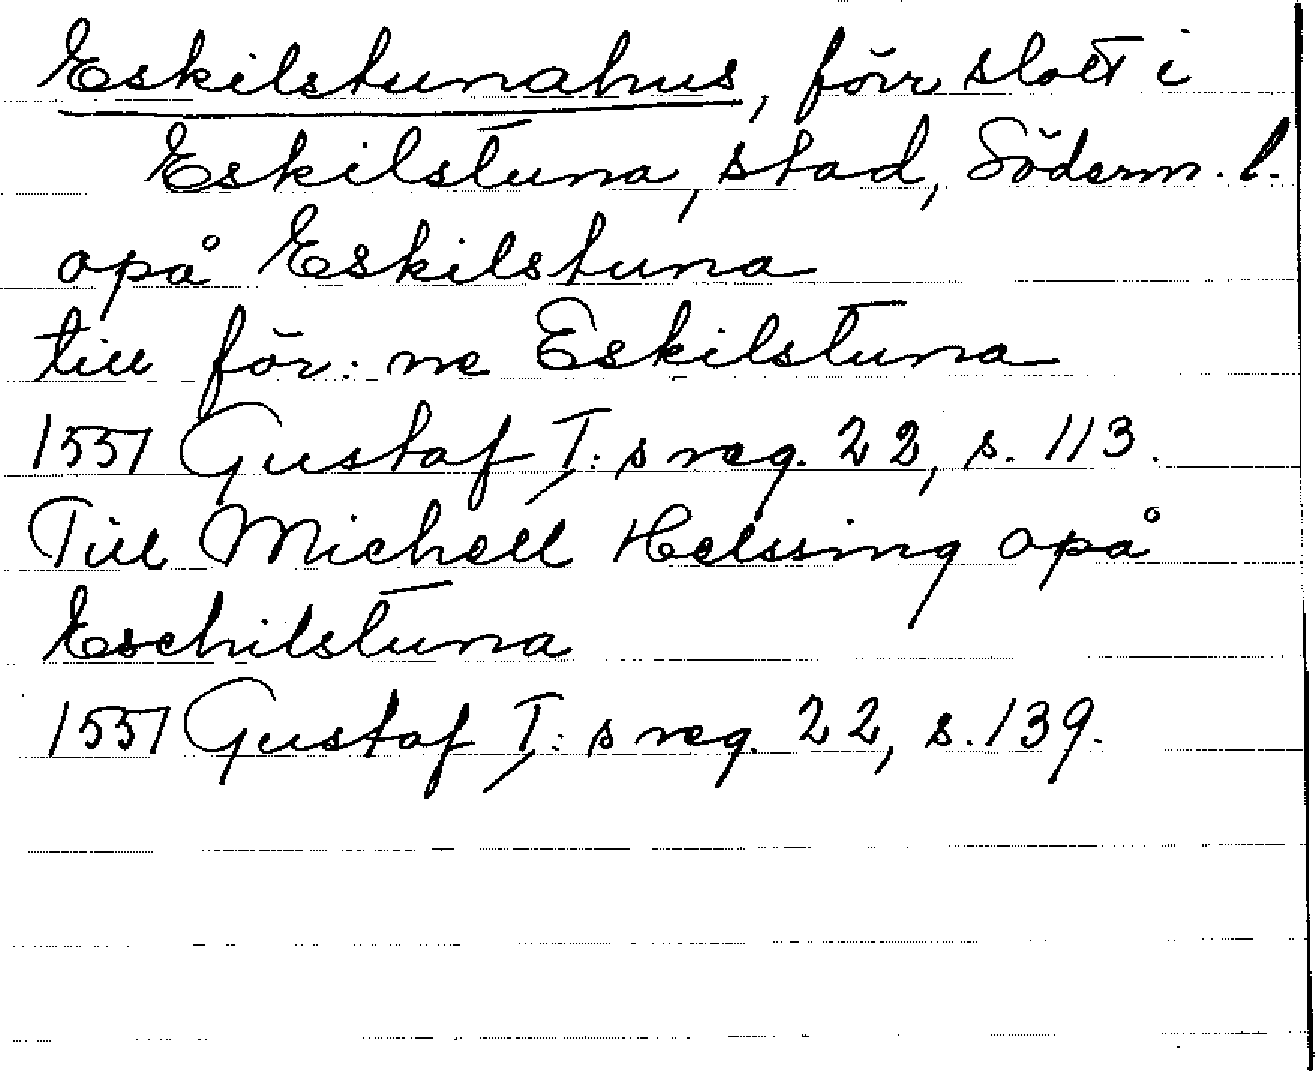 Eskilstunahus, förr slott i
Eskilstuna, stad, Söderm. l.
opå Eskilstuna
till för: ne Eskilstuna
1551 Gustaf I: s reg. 22, s. 113.
Till Michell Helssing opå
Eschilstuna
1551 Gustaf I: s reg. 22, s. 139.